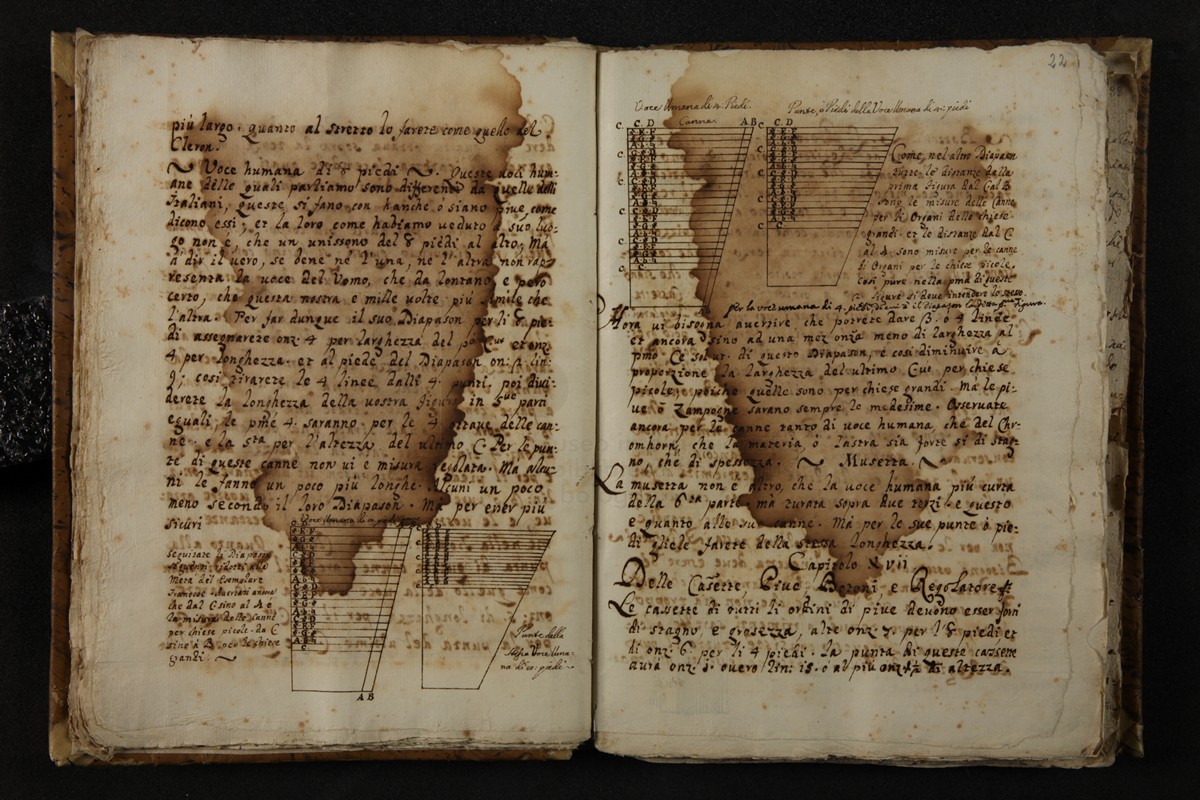 più largo. quanto al stretto lo farete come quello del
Cleron.
Voce humana di 8 piedi. Queste voci hum=
ane delle quali parliamo sono differenti da quelle delli
Italiani, queste si fano con hanche ò siano piue, come
dicono essi, et la loro come habiamo veduto à suo luo=
go non è, che un unissono del 8 piedi al altro, Mà
à dir il vero, se bene nè l'una, nè l'altra non rap=
resenta la voce del Uomo, che da lontano e però
certo, che questa nostra e mille volte più simile che
l'altra. Per far dunque il suo Diapason per li 8 pie=
di assegnarete onz. 4 per larghezza del et onz.
4 per longhezza. et al piede del Diapason on: lin:
9; così tirarete le 4 linee dalli 4. punti, poi divi=
derete la longhezza della vostra figura in 5 parti
eguali; le pme 4. saranno per le 4 ottave delle can=
ne. e la sta per l'altezza del ultimo C. Per le pun=
te di queste canne non vi e misura regolata. Ma alcu=
ni le fanno un poco più longhe. Alcuni un poco
meno secondo il loro Diapason. Ma per esser più
sicuri
Voce Umana di
seguitate li Diapason
del esemplare
che dal C sino al A è
la misura delle canne
per chiese picole. da C
sino à B. per le chiese
grandi.
Punte della
Voce Uma=
na di 8: piedi
A B
22
Voce Umana di 4. Piedi.
Canna.
Punte, ò Piedi della Voce Umana di 4: piedi
C C. D A B
C C. D
Come, nel altro Diapason
tutte le distanze dalla
prima figura dal C al B
sono le misure delle Canne
per li Organi delle chiese
grandi. et le distanze dal C
al A sono misure per le canne
di Organi per le chiese picole,
così pure nella pma di queste
figure si deve intendere lo stesso.
Per la voce umana di 4. piedi,
Hora vi bisogna avertire, che potrete dare 3. ò 4 linee
et ancora sino ad una mez onza meno di larghezza al
pmo C sol ut. di questo Diapason, e così diminuire à
proporzione la larghezza del ultimo C ut per chiese
picole; poichè quelle sono per chiese grandi. Ma le pi=
ve ò Zampogne sarano sempre le medesime. Osservate
ancora per le canne tanto di voce humana, che del Chr=
omhorn, che la materia ò lastra sia forte sì di stag=
no, che di spessezza. Musetta.
La musetta non è altro, che la voce humana più curta
della 6ta parte ma turata sopra due terzi. e questo
e quanto alle sue canne. Mà per le sue punte ò pie=
di gliele farete della stessa longhezza.
Capitolo XVII
Delle Casette Piue Betoni e Regolatore
Le cassette di tutti li ordini di piue devono esser forti
di stagno, e grossezza, alte onz 7. per l'8 piedi et
di onz. 6 per li 4 piedi. la punta di queste cassette
avrà onz overo lin: 15. ò al più onz di altezza.